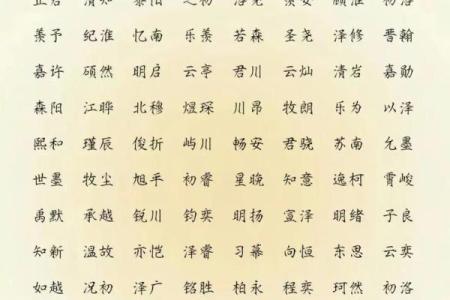 羡予 纪淮 忆南 乐羡 若森 圣尧 泽修 晋翰
嘉许 硕然 明启 云亭 君川 云灿 清岩 嘉勋
森阳 江晔 北穆 煜琛 川昂 牧朗 乐为 以泽
熙和 瑾辰 俊折 屿川 畅安 君骁 苏南 允墨
世墨 牧尘 旭平 初睿 星晚 知意 逸柯 霄峻
禹默 承越 锐川 钧奕 明扬 宣泽 明绪 子良
知新 温故 亦恺 泽睿 习幕 向恒 东思 云奕
如越 况初 泽广 铭胜 柏永 程奕 珂然 初洛